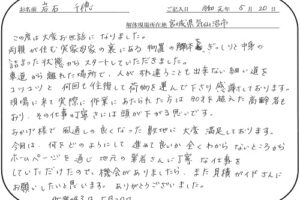 お名前 岩石 千穂 ご記入日 令和 元年 5月 20日
解体現場所在地 宮城県気仙沼市
この度は大変お世話になりました。
両親が住む実家母家の裏にある物置の解体、ぎっしりと中身の
詰まった状態からスタートしていただきました。
車道から離れた場所で、人がすれ違うことも出来ない細い道を
コツコツと何回も往復して荷物を運んで下さり感謝しております。
現場に来て実際に作業にあたられた方は80才を超えた高齢者も
おり、その仕事の丁寧さには頭が下がる思いです。
おかげ様で風通しの良くなった敷地に大変満足しております。
今回は、何をどのようにして進めて良いか全くわからないところから
ホームページを通じ地元の業者さんに丁寧な仕事を
していただけたので、機会がありましたら、また見積ガイドさんに
お願いしたいと思います。ありがとうございました。